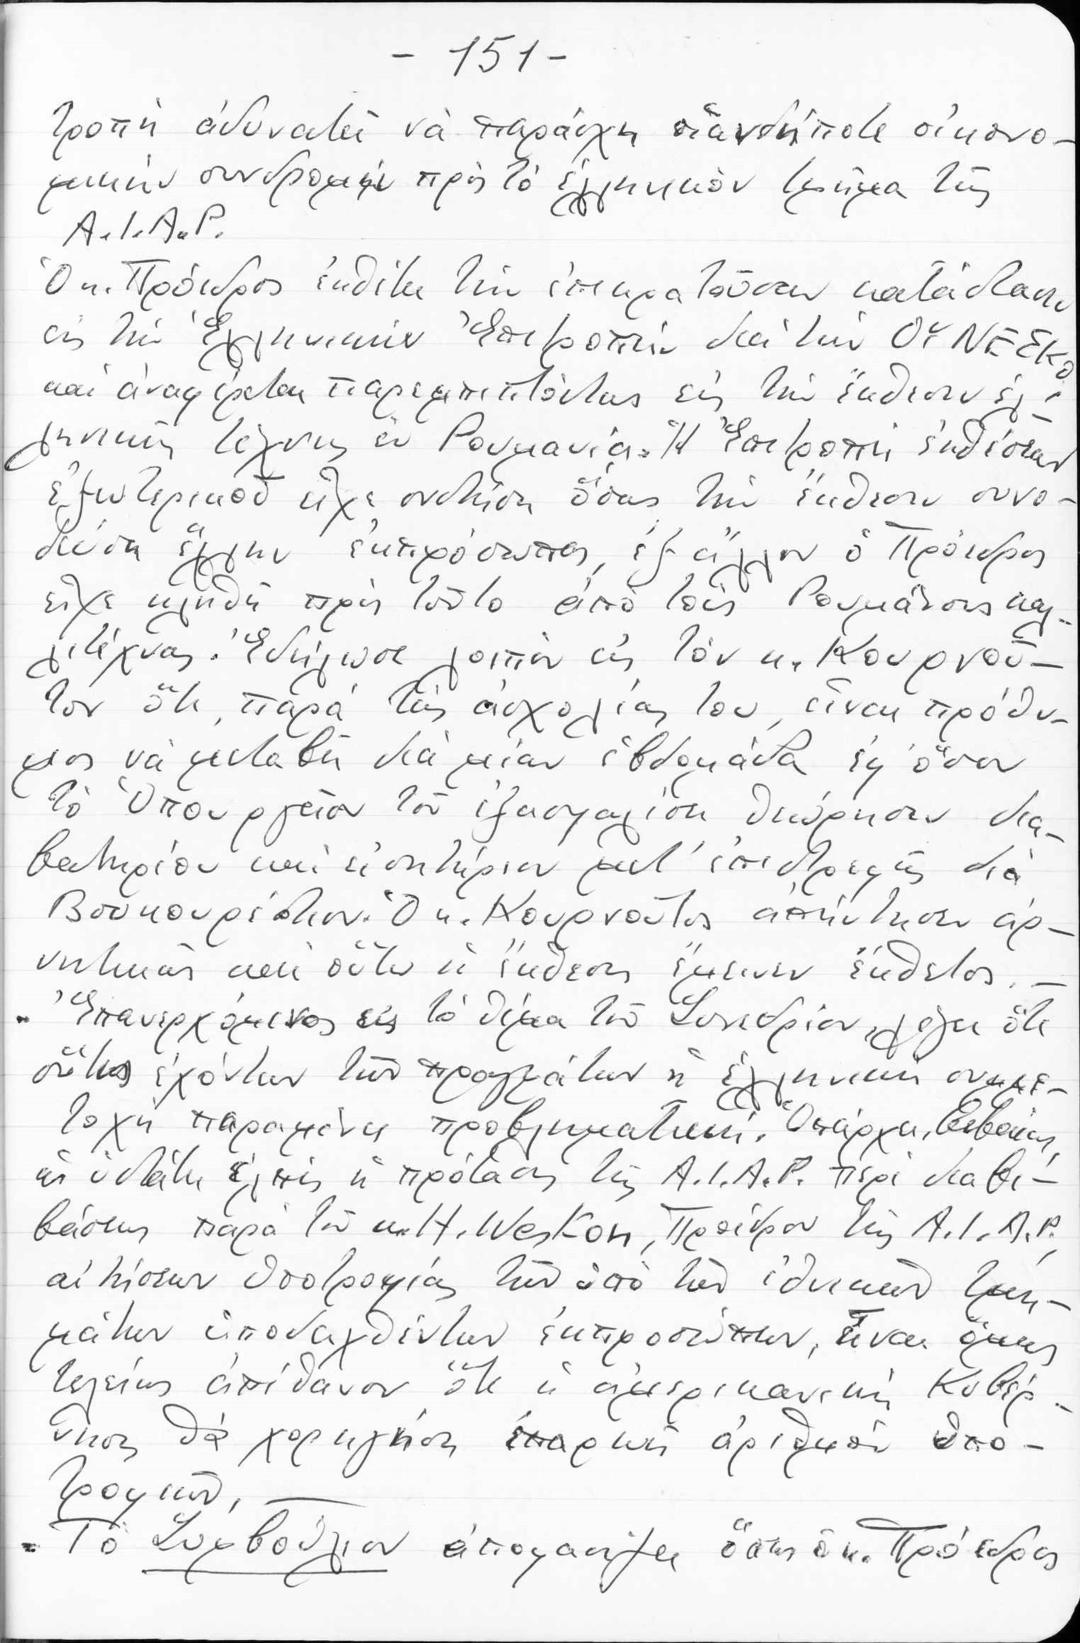 - 151 -
τροπὴ ἀδυνατεῖ νὰ παράσχῃ οἱανδήποτε οἰκονο-
μικὴν συνδρομὴν πρὸς τὸ ἑλληνικὸν τμῆμα τῆς
A.I.A.P.
Ὁ κ. Πρόεδρος ἐκθέτει τὴν ἐπικρατοῦσαν κατάστασιν
εἰς τὴν Ἑλληνικὴν Ἐπιτροπὴν διὰ τὴν ΟΥΝΕΣΚΟ
καὶ ἀναφέρεται παρεμπιπτόντως εἰς τὴν ἔκθεσιν ἑλ-
ληνικῆς τέχνης ἐν Ρουμανίᾳ. Ἡ Ἐπιτροπὴ ἐκθέσεων
ἐξωτερικοῦ εἶχε συστήσει ὅπως τὴν ἔκθεσιν συνο-
δεύσῃ ἕλλην ἐκπρόσωπος, ἐξ ἄλλου ὁ Πρόεδρος
εἶχε κληθῆ πρὸς τοῦτο ἀπὸ τοὺς Ρουμάνους καλ-
λιτέχνας. Ἐδήλωσε λοιπὸν εἰς τὸν κ. Κουρνοῦ-
τον ὅτι, παρὰ τὰς ἀσχολίας του, εἶναι πρόθυ-
μος νὰ μεταβῆ διὰ μίαν ἑβδομάδα ἐφ' ὅσον
τὸ Ὑπουργεῖον τοῦ ἐξασφαλίσῃ θεώρησιν δια-
βατηρίου καὶ εἰσητήριον μετ' ἐπιστροφῆς διὰ
Βουκουρέστιον. Ὁ κ. Κουρνοῦτος ἀπήντησεν ἀρ-
νητικῶς καὶ οὕτω ἡ ἔκθεσις ἔμεινεν ἔκθετος. -
- Ἐπανερχόμενος εἰς τὸ θέμα τοῦ Συνεδρίου, λέγει ὅτι
οὕτως ἐχόντων τῶν πραγμάτων ἡ ἑλληνικὴ συμμε-
τοχὴ παραμένει προβληματική. Ὑπάρχει, βεβαίως,
ὡς ὑστάτη ἐλπὶς ἡ πρότασις τῆς A.I.A.P. περὶ διαβι-
βάσεως παρὰ τοῦ κ. H. Weston, Προέδρου τῆς A.I.A.P.,
αἰτήσεων ὑποτροφίας τῶν ὑπὸ τῶν ἐθνικῶν τμη-
μάτων ὑποδειχθέντων ἐκπροσώπων, εἶναι ὅμως
τελείως ἀπίθανον ὅτι ἡ ἀμερικανικὴ Κυβέρ-
νησις θὰ χορηγήσῃ ἐπαρκῆ ἀριθμὸν ὑπο-
τροφιῶν. -
- Τὸ Συμβούλιον ἀποφασίζει ὅπως ὁ κ. Πρόεδρος